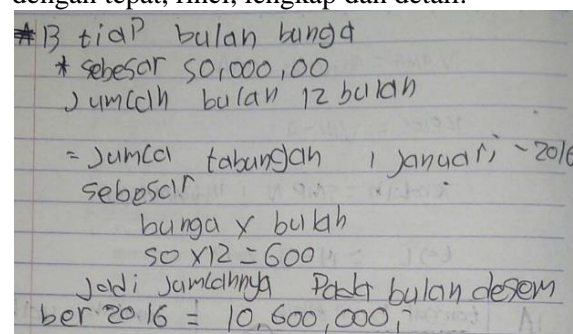 dengan tepat, rinci, lengkap dan detail.
#B tiap bulan bunga
* sebesar 50,000,00
Jumlah bulan 12 bulan
= Jumlal tabungan 1 januari - 2016
sebesar
bunga x bulan
50 x 12 = 600
Jadi Jumlahnya Pada bulan desem
ber 2016 = 10,600,000,-